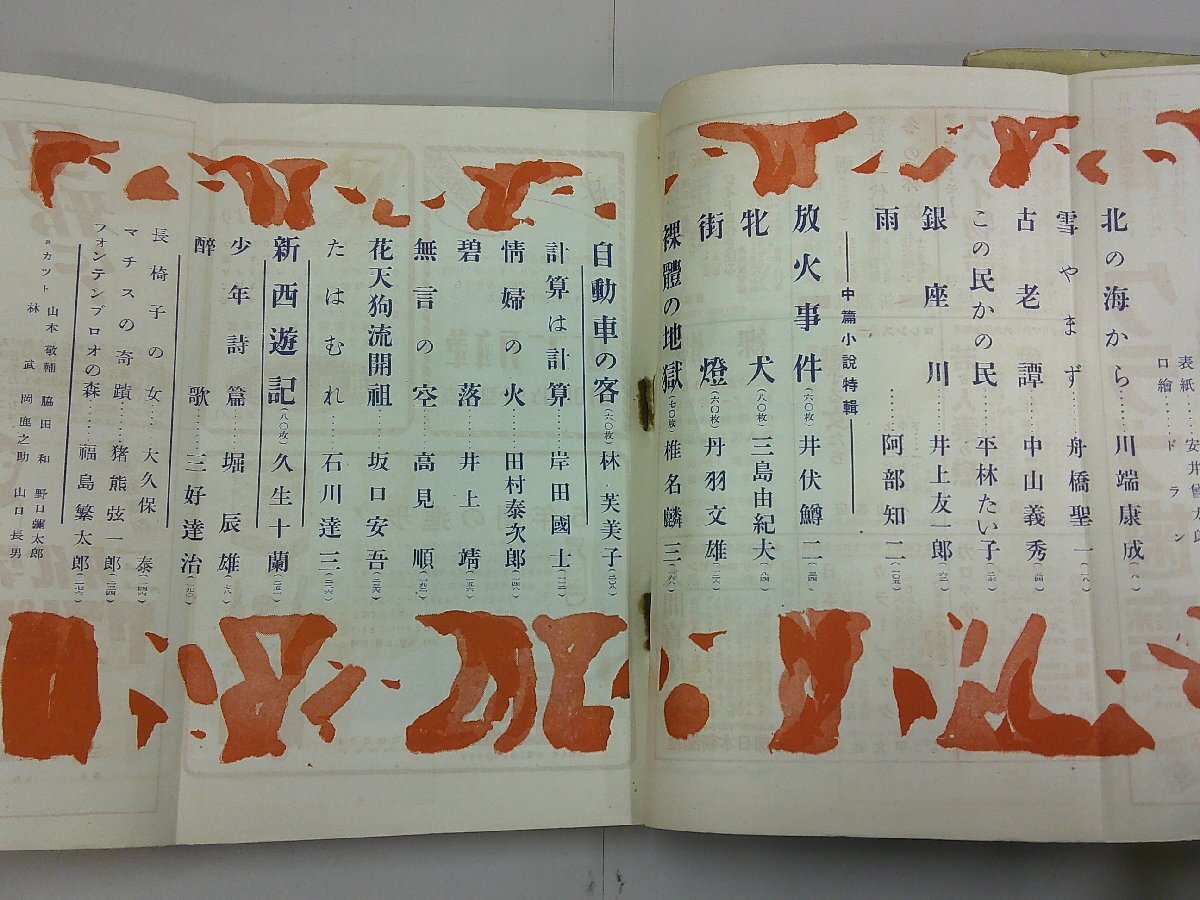 表紙……安井曾太郎
口繪……ドラン
北の海から……川端康成(八)
雪やまず……舟橋聖一(一八)
古老譚……中山義秀(四四)
この民かの民……平林たい子(三六)
銀座川……井上友一郎(六二)
雨……阿部知二(一〇五)
――中篇小說特輯――
放火事件(六〇枚)井伏鱒二(三四)
牝犬(八〇枚)三島由紀夫(八四)
街燈(六〇枚)丹羽文雄
裸體の地獄(七〇枚)椎名麟三(二六八)
自動車の客(六〇枚)林芙美子(二〇八)
計算は計算……岸田國士
情婦の火……田村泰次郎(一四八)
碧落……井上靖(一五六)
無言の空……高見順(一九二)
花天狗流開祖……坂口安吾
たはむれ……石川達三
新西遊記(八〇枚)久生十蘭
少年詩篇……堀辰雄(七八)
醉歌……三好達治(一九〇)
長椅子の女……大久保泰(一四六)
マチスの奇蹟……猪熊弦一郎
フォンテンブロオの森……福島繁太郎(一七六)
カット 山本敬輔 脇田和 野口彌太郎
林武 岡鹿之助 山口長男